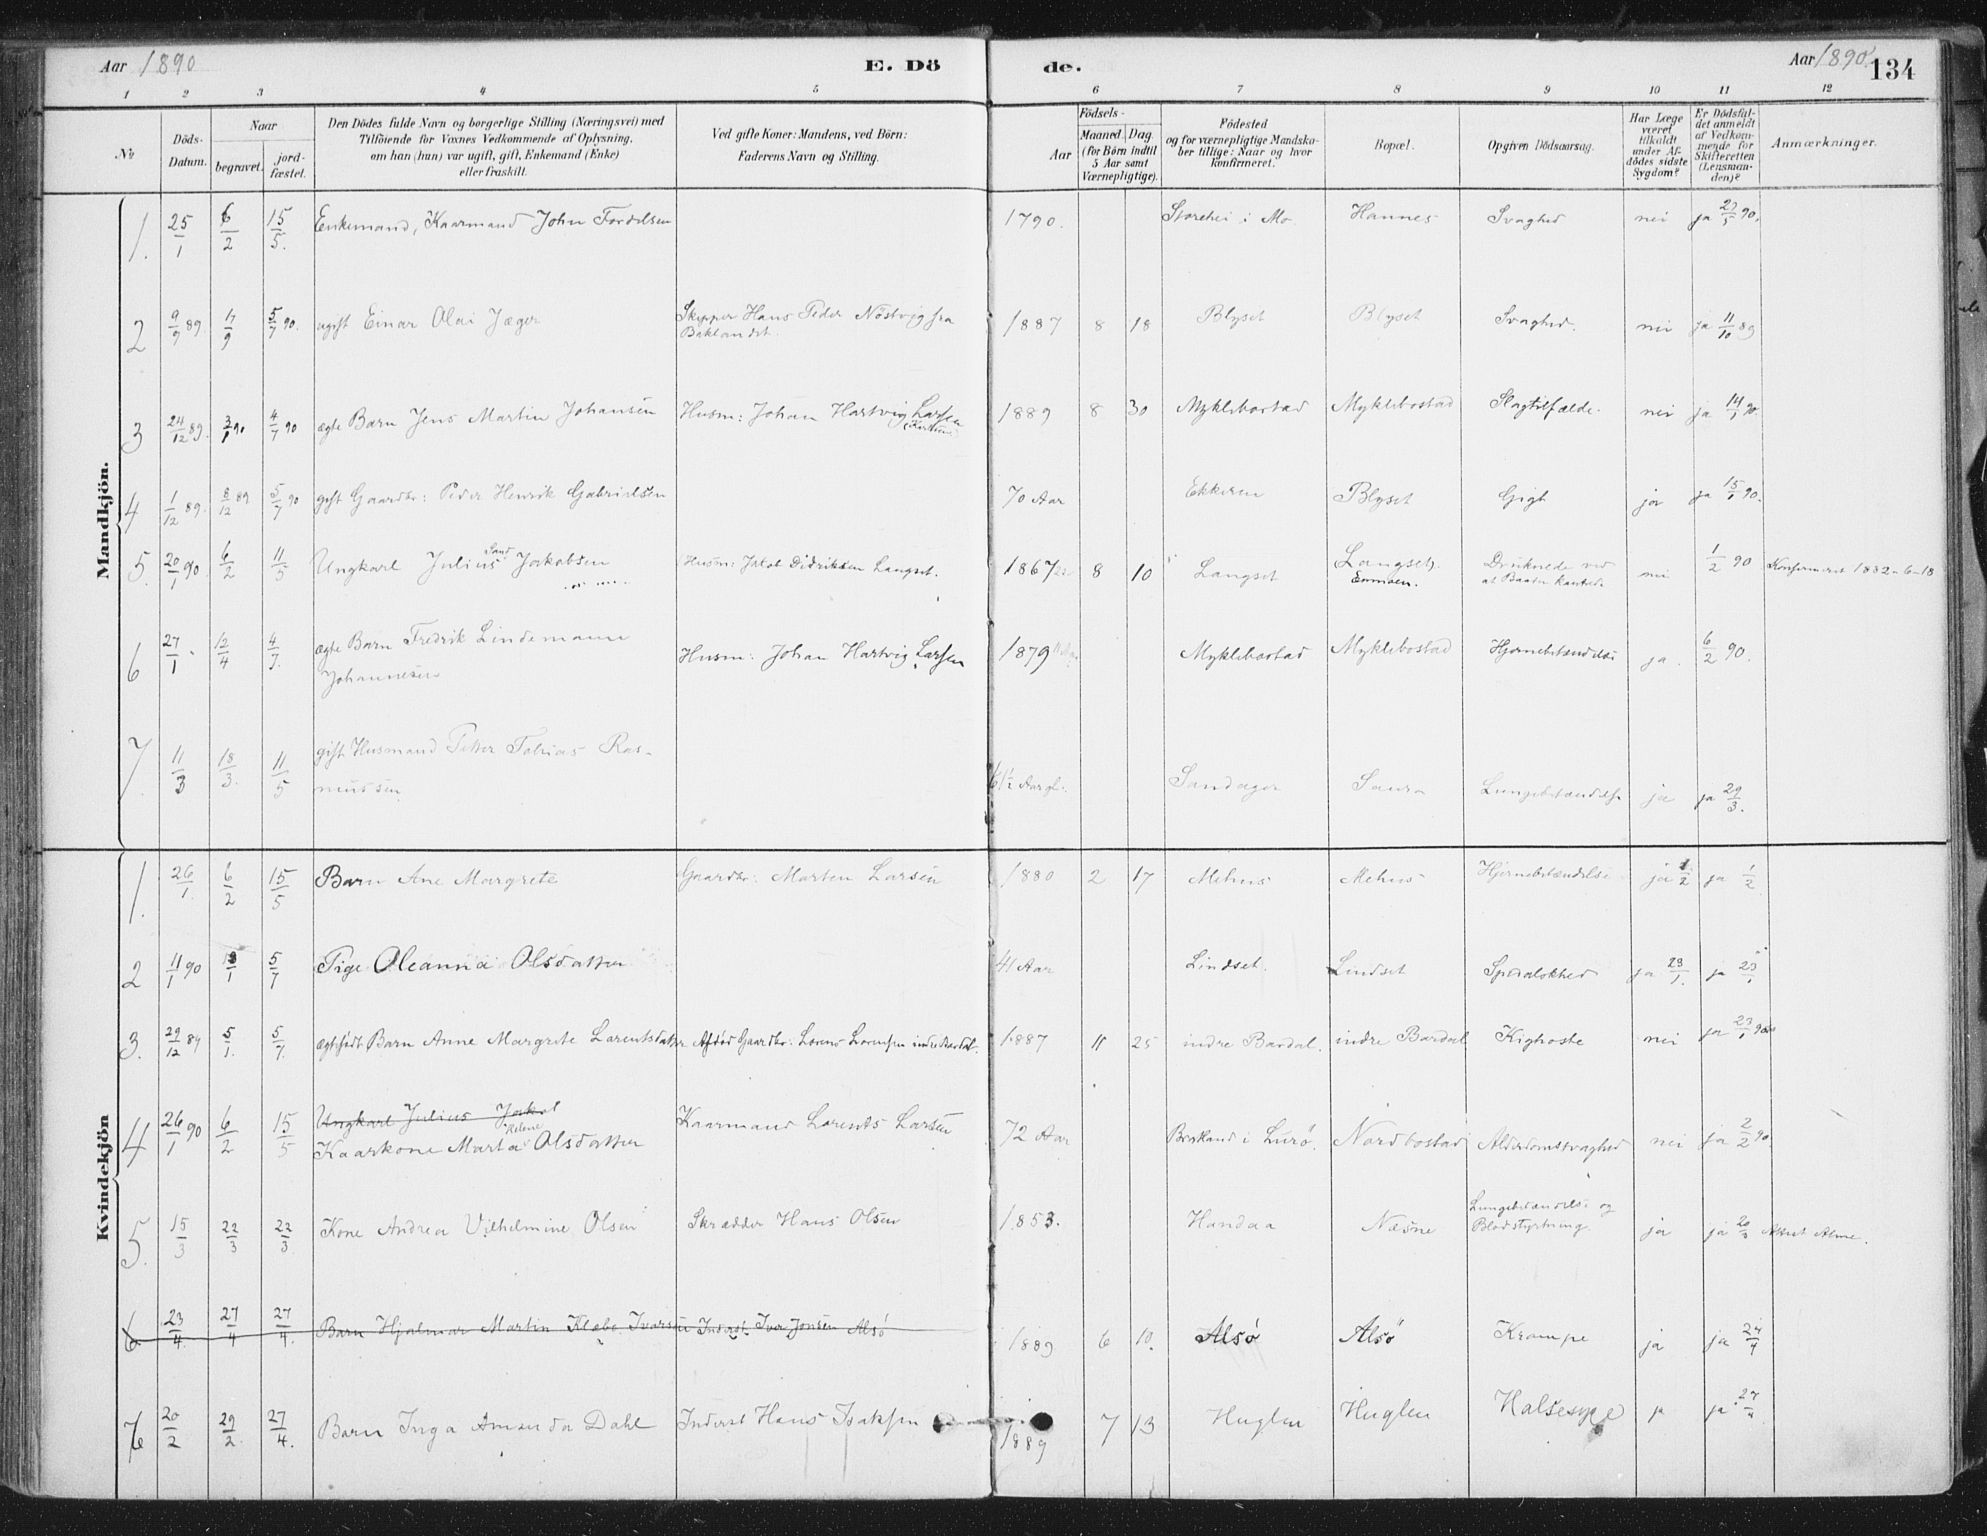 Aar 1890 E. Dö de. Aar 1890. 134
1 2 3 4 5 6 7 8 9 10 11 12
№
Döds-Datum.
Naar
begravet.
jord-fæstet.
Den Dödes fulde Navn og borgerlige Stilling (Næringsvei) med
Tilföiende for Voxnes Vedkommende af Oplysning,
om han (hun) var ugift, gift, Enkemand (Enke)
eller fraskilt.
Ved gifte Koner: Mandens, ved Börn:
Faderens Navn og Stilling.
Födsels-
Aar
Maaned. Dag.
(for Börn indtil
5 Aar samt
Værnepligtige).
Födested
og for værnepligtige Mandska-
ber tillige: Naar og hvor
konfirmeret.
Bopæl.
Opgiven Dödsaarsag.
Har Læge
været
tilkaldt
under Af-
dödes sidste
Sygdom?
Er Dödsfal-
det anmeldt
af Vedkom-
mende for
Skifteretten
(Lensman-
den)?
Anmærkninger.
Mandkjön.
1. 25/1 6/2 15/5. Enkemand, Kaarmand John 1790. i Mo Hannes Svaghed nei ja 27/5 90.
2 9/9 89. 17/9 5/7 90. ugift Einar Olai Jæger Skipper Hans Peder Nöstvig fra
Baklandet. 1887 8 18 Blyset Blyset Svaghed. nei ja 11/10 89
3 24/12 89. 3/1 90 4/7 90 ægte Barn Jens Martin Johansen Husm: Johan Hartvig Larsen 1889 8 30 Myklebostad Myklebostad Slagtilfælde. nei ja 14/1 90.
4 1/12 89. 8/12 89 5/7 90 gift Gaardbr: Peder Henrik Gabrielsen 70 Aar Blyset Gigt ja ja 15/1 90.
5. 20/1 90. 6/2 11/5 Ungkarl Julius Sand Jakobsen Husm: Jakob Didriksen Langset. 1867 8 10 Langset Langset. Druknede ved
at Baaden kantrede nei 1/2 90 Konfirmeret 1882-6-18
6 27/1 12/4 4/7. ægte Barn Fredrik Lindemann
Johannesen Husm: Johan Hartvig Larsen 1879 Myklebostad Myklebostad Hjernebetændelse ja. 6/2 90.
7. 11/3 18/3. 11/5 gift Husmand Petter Tobias Ras-
mussen 61½ Aar gl. Sandager Saura Lungebetændelse ja ja 29/3.
Kvindekjön
1. 26/1. 6/2 15/5 Barn Ane Margrete Gaardbr: Morten Larsen 1880 2 17 Mehus Mehus Hjernebetændelse ja 1/2 ja 1/2.
2 11/1 90 5/7 Pige Oleanna Olsdatter 41 Aar Lindset. Lindset Spedalskhed ja 23/1. ja 23/1
3. 29/12 89 5/1. 5/7. ægtefødt Barn Anne Margrete Larentsdatter Afdød Gaardbr: Lorens Lorensen indre Bardal. 1887 11 25 indre Bardal. indre Bardal Kighoste nei ja 23/1 90
4 26/1 90 6/2 15/5 Ungkarl Julius Jakob
Kaarkone Marta Helene Olsdatter Kaarmand Lorents Larsen 72 Aar i Lurø. Nordbostad Alderdomssvaghed nei ja 2/2 90.
5. 15/3 22/3 22/3. Kone Andrea Vilhelmine Olsen Skrædder Hans Olsen 1853. Handaa Næsne Lungebetændelse og
Blodstyrtning ja ja 20/3
6. 23/4. 27/4 27/4. Barn Hjalmar Martin Klæbo Ivarsen Inderst Iver Jonsen Alsø 1889 6 10. Alsø Alsø Krampe ja ja 24/4
6 20/2 29/2. 27/4. Barn Inga Amanda Dahl Inderst Hans Isaksen 1889 7 13 Huglen Huglen Halsesyge ja ja 27/4